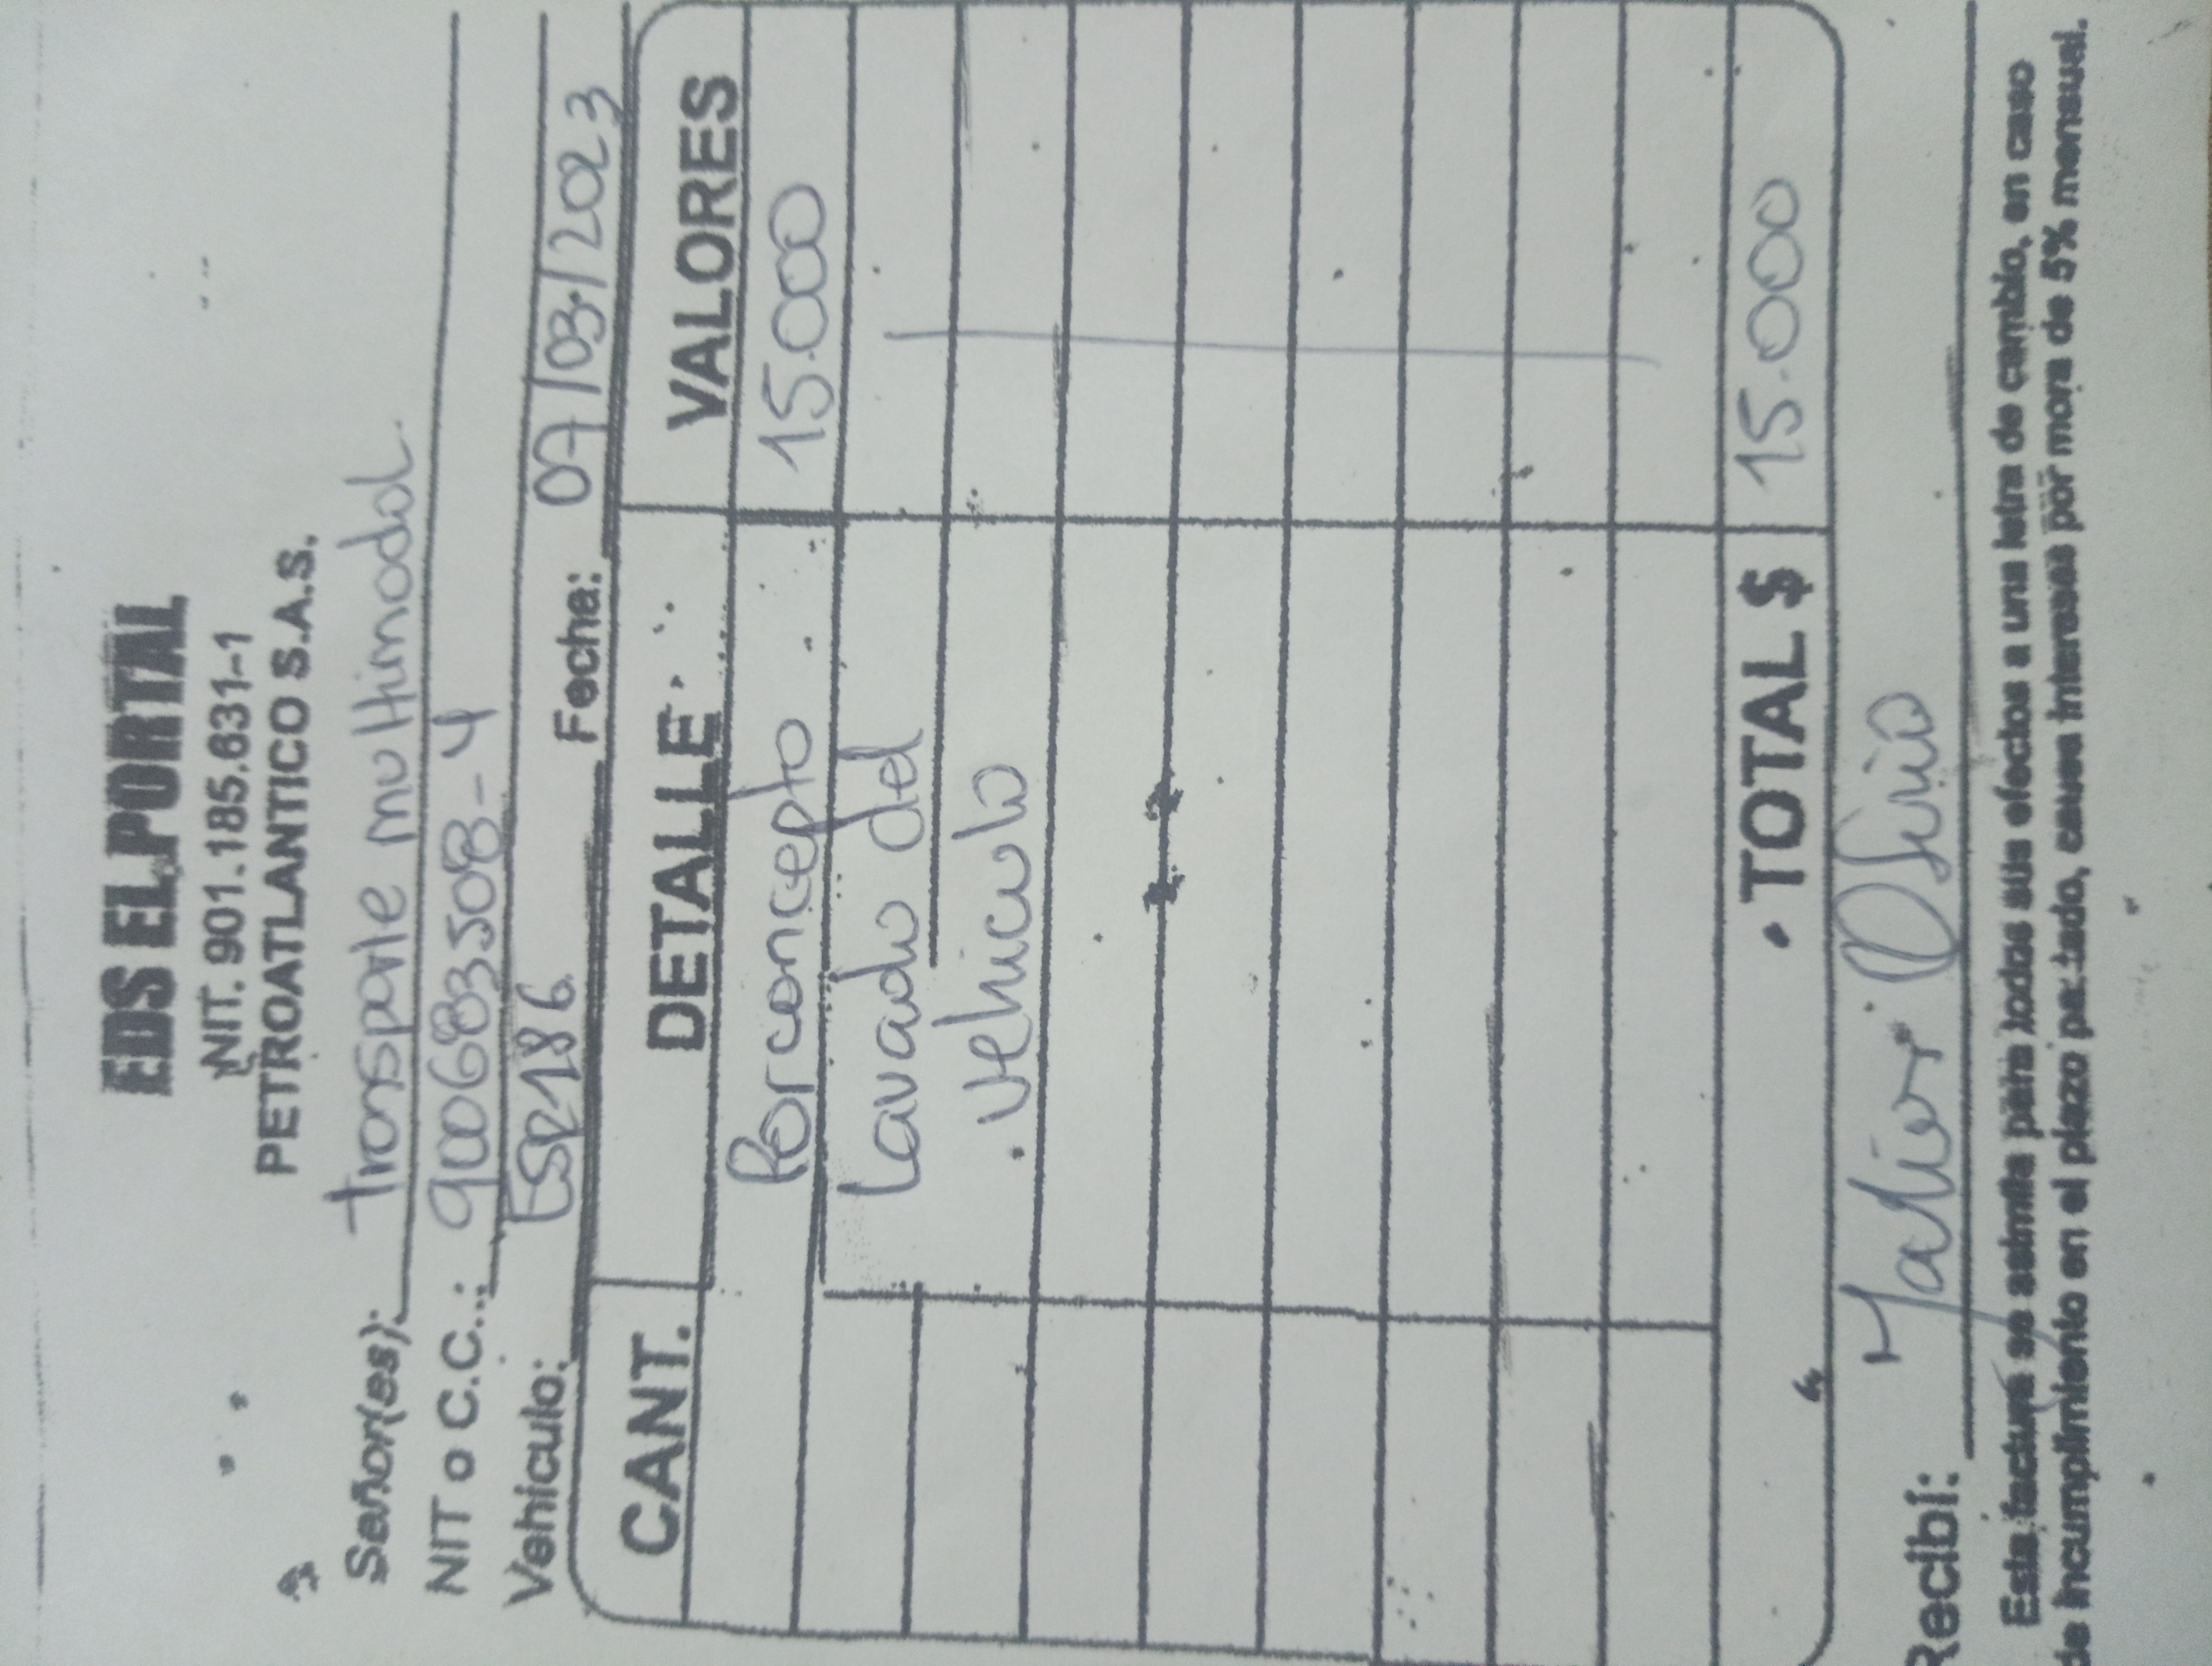 EDS EL PORTAL
NIT. 901.185.631-1
PETROATLANTICO S.A.S.
Señor(es): transporte multimodal.
NIT o C.C.: 900683508-4
Vehículo: ESR186 Fecha: 07/03/2023
CANT. DETALLE VALORES
Por concepto 15.000
Lavado del
vehiculo
TOTAL $ 15.000
Recibí: Osirio
Esta factura se asimila para todos sus efectos a una letra de cambio, en caso
de incumplimiento en el plazo pactado, causa intereses por mora de 5% mensual.